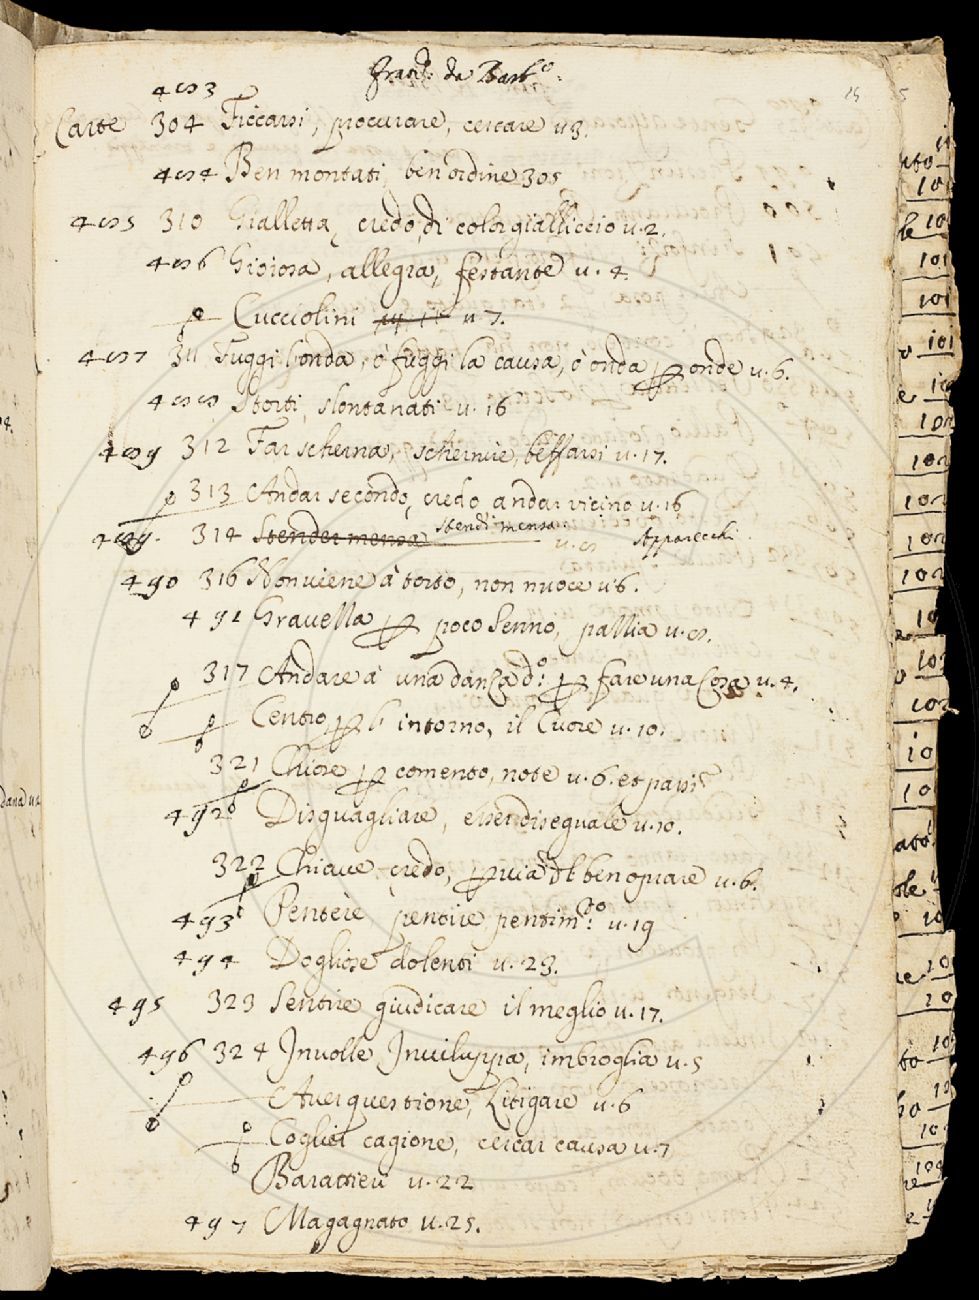 Franc. da Barb.o
15
483
Carte 304 Ficcarsi, procurare, cercare u3.
484 Ben montati, ben ordine 305
485 310 Gialletta, credo, di color gialliccio u.2.
486 Gioiosa, allegra, festante u.4.
Cucciolini u 7.
487 311 Fuggi l'onda, ò fuggi la causa, ò onda per onde u.6.
488 Storti, slontanati u.16
489 312 Far scherna, schernire, beffarsi u.17.
313 Andar secondo, credo, andar vicino u.16
489. 314 Stender mensa Stendi mensa u.8 Apparecchi
490 316 Non viene à torto, non nuoce u6.
491 Gravella per poco Senno, pallia u.8.
317 Andare à una danza d.o per fare una Cosa u.4.
Centro per li intorno, il Cuore u.10.
321 Chiose per comento, note u.6. et passi
492 Disguagliare, esser diseguale u.10.
322 Chiave, credo, per via del ben oprare u.6.
493 Pentere, pentire, pentim.to u.19
494 Dogliose dolenti u.23.
495 323 Sentire giudicare il meglio u.17.
496 324 Involle Inviluppa, imbroglia u.5
Aver questione, Litigare u.6
Coglier cagione, cercar causa u.7
Barattieri u.22
497 Magagnato u.25.